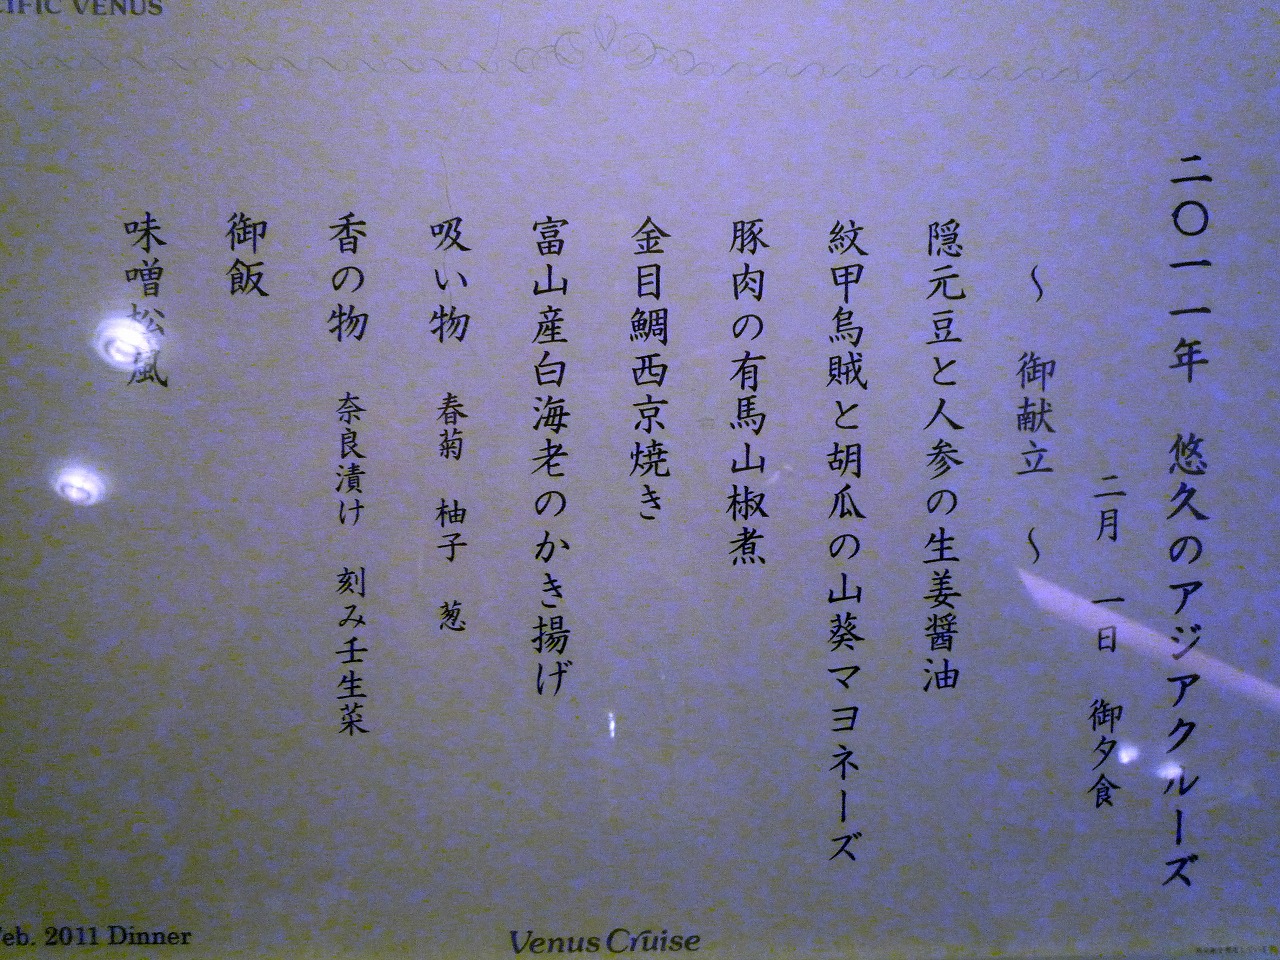 CIFIC VENUS
二〇一一年　悠久のアジアクルーズ
二月　一日　御夕食
～　御献立　～
隠元豆と人参の生姜醤油
紋甲烏賊と胡瓜の山葵マヨネーズ
豚肉の有馬山椒煮
金目鯛西京焼き
富山産白海老のかき揚げ
吸い物　春菊　柚子　葱
香の物　奈良漬け　刻み壬生菜
御飯
味噌松風
Feb. 2011 Dinner
Venus Cruise